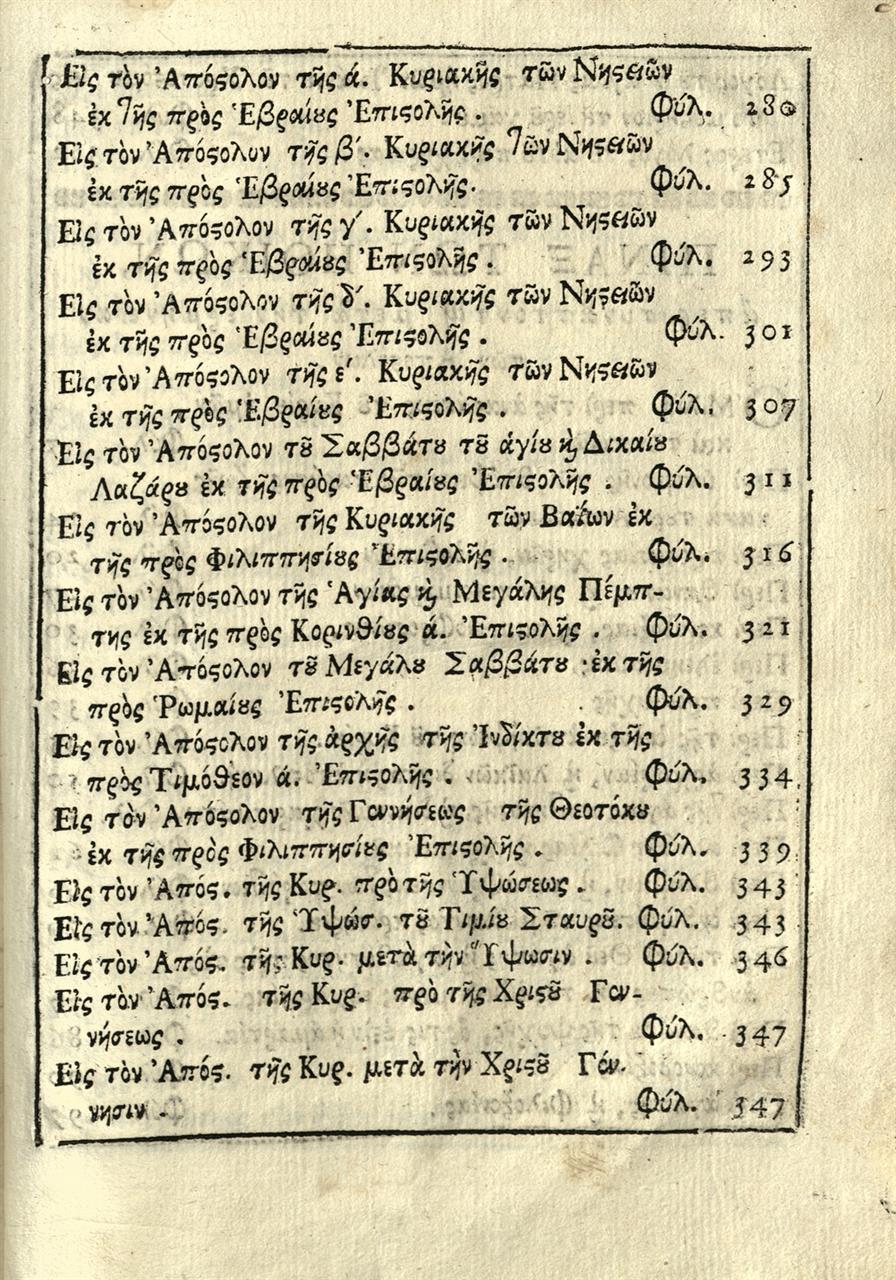 Εἰς τὸν Ἀπόςολον τῆς ά. Κυριακῆς τῶν Νηςειῶν
ἐκ τῆς πρὸς Ἑβραίους Ἐπιςολῆς . Φύλ. 280
Εἰς τὸν Ἀπόςολον τῆς β´. Κυριακῆς τῶν Νηςειῶν
ἐκ τῆς πρὸς Ἑβραίους Ἐπιςολῆς. Φύλ. 285
Εἰς τὸν Ἀπόςολον τῆς γ´. Κυριακῆς τῶν Νηςειῶν
ἐκ τῆς πρὸς Ἑβραίους Ἐπιςολῆς . Φύλ. 293
Εἰς τὸν Ἀπόςολον τῆς δ´. Κυριακῆς τῶν Νηςειῶν
ἐκ τῆς πρὸς Ἑβραίους Ἐπιςολῆς . Φύλ. 301
Εἰς τὸν Ἀπόςολον τῆς ε´. Κυριακῆς τῶν Νηςειῶν
ἐκ τῆς πρὸς Ἑβραίους Ἐπιςολῆς . Φύλ. 307
Εἰς τὸν Ἀπόςολον τοῦ Σαββάτου τοῦ ἁγίου ϗ Δικαίου
Λαζάρου ἐκ τῆς πρὸς Ἑβραίους Ἐπιςολῆς . Φύλ. 311
Εἰς τὸν Ἀπόςολον τῆς Κυριακῆς τῶν Βαΐων ἐκ
τῆς πρὸς Φιλιππησίους Ἐπιςολῆς . Φύλ. 316
Εἰς τὸν Ἀπόςολον τῆς Ἁγίας ϗ Μεγάλης Πέμπ-
της ἐκ τῆς πρὸς Κορινθίους ά. Ἐπιςολῆς . Φύλ. 321
Εἰς τὸν Ἀπόςολον τοῦ Μεγάλου Σαββάτου ἐκ τῆς
πρὸς Ῥωμαίους Ἐπιςολῆς . Φύλ. 329
Εἰς τὸν Ἀπόςολον τῆς ἀρχῆς τῆς Ἰνδίκτου ἐκ τῆς
πρὸς Τιμόθεον ά. Ἐπιςολῆς . Φύλ. 334
Εἰς τὸν Ἀπόςολον τῆς Γεννήσεως τῆς Θεοτόκου
ἐκ τῆς πρὸς Φιλιππησίους Ἐπιςολῆς . Φύλ. 339
Εἰς τὸν Ἀπός. τῆς Κυρ. πρὸ τῆς Ὑψώσεως . Φύλ. 343
Εἰς τὸν Ἀπός. τῆς Ὑψώσ. τοῦ Τιμίου Σταυροῦ. Φύλ. 343
Εἰς τὸν Ἀπός. τῆς Κυρ. μετὰ τὴν Ὕψωσιν . Φύλ. 346
Εἰς τὸν Ἀπός. τῆς Κυρ. πρὸ τῆς Χριςοῦ Γεν-
νήσεως . Φύλ. 347
Εἰς τὸν Ἀπός. τῆς Κυρ. μετὰ τὴν Χριςοῦ Γέν-
νησιν . Φύλ. 347